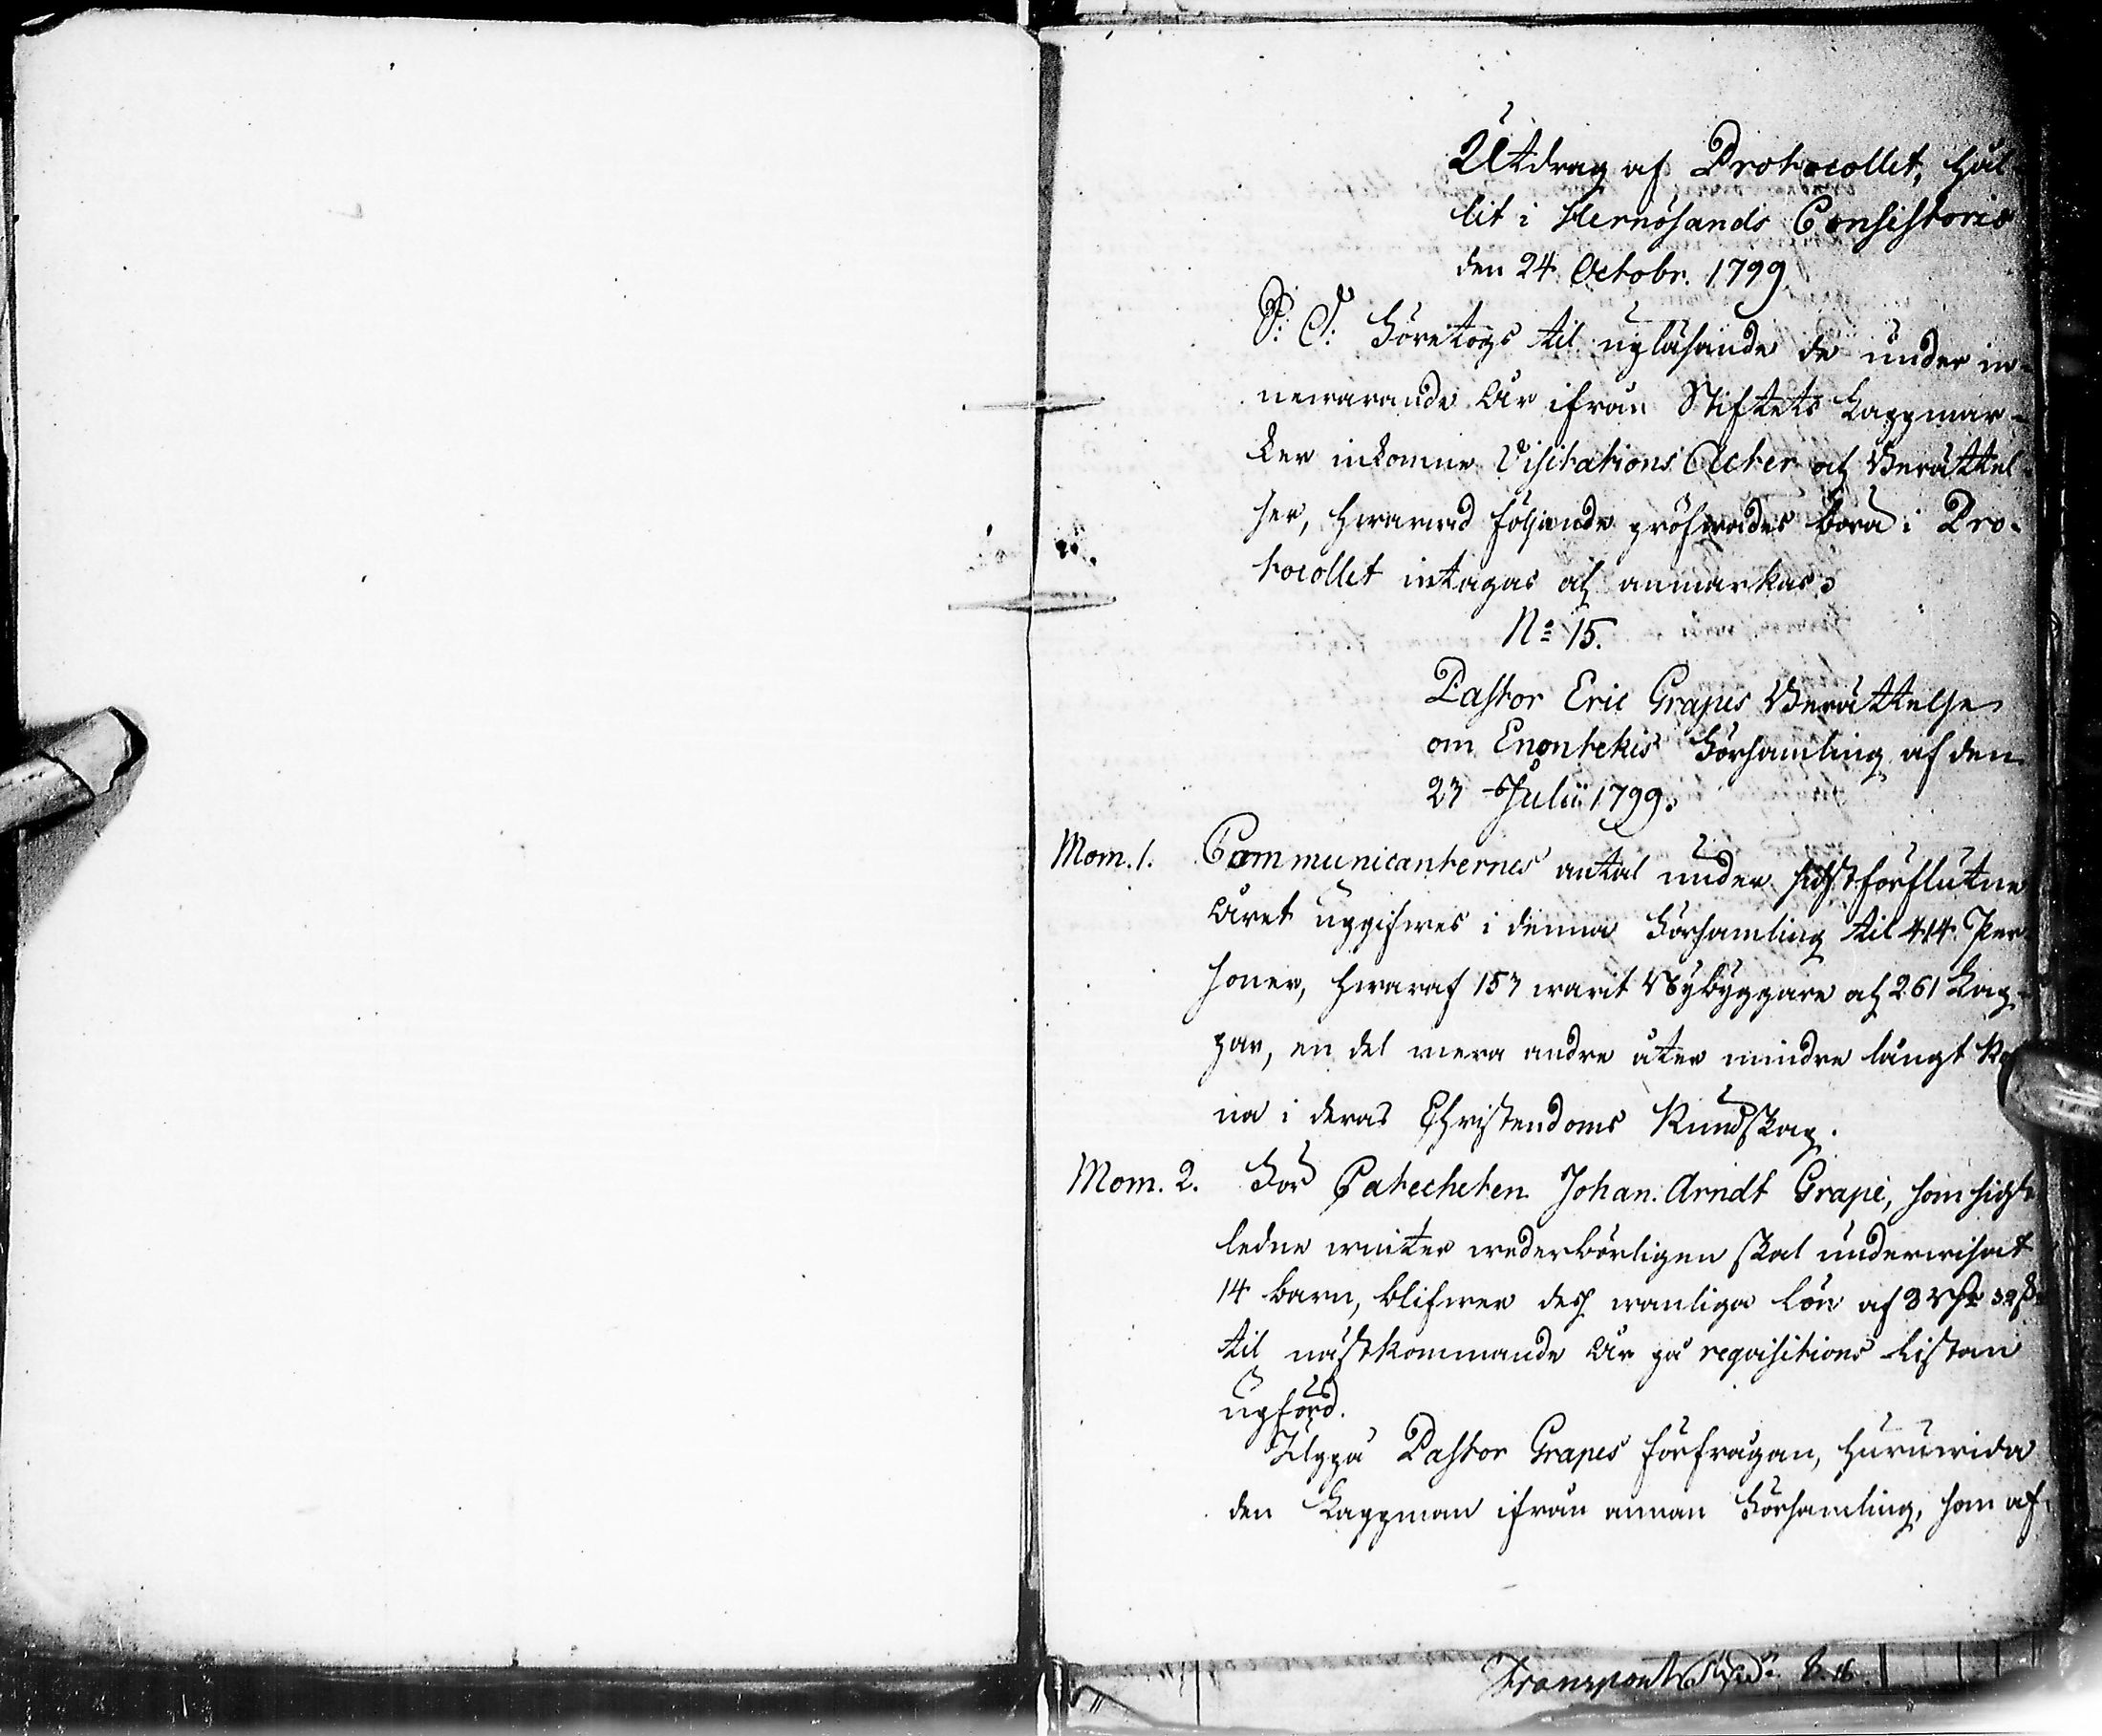 Utdrag af Protocollet, hål-
lit i Hernösands Consistorio
den 24 Octobr. 1799.
S: D: Företogs til upläsande de under in-
newarande år ifrån Stiftets Lappmar-
ker inkomne Visitations Acter och Berättel-
ser, hwarwid följande pröfwades böra i Pro-
tocollet intagas och anmärkas:
No 15.
Pastor Eric Grapes Berättelse
om Enontekis Församling af den
23 Julii 1799.
Mom. 1. Communicanternes antal under sistförflutne
året uppgifwes i denna Församling til 414 Per-
soner, hwaraf 153 warit Nybyggare och 261 Lap-
par, en del mera andre åter mindre långt
na i deras Christendoms Kundskap.
Mom. 2. För Catecheten Johan Arndt Grape, som sist-
ledne winter wederbörligen skal underwisat
14 barn, blifwer dess wanliga lön af 3 Rdr 32 s
til nästkommande år på reqvisitions Listan
upförd.
Uppå Pastor Grapes förfrågan, huruwida
den Lappman ifrån annan Församling, som af-
Transport 8. 16.